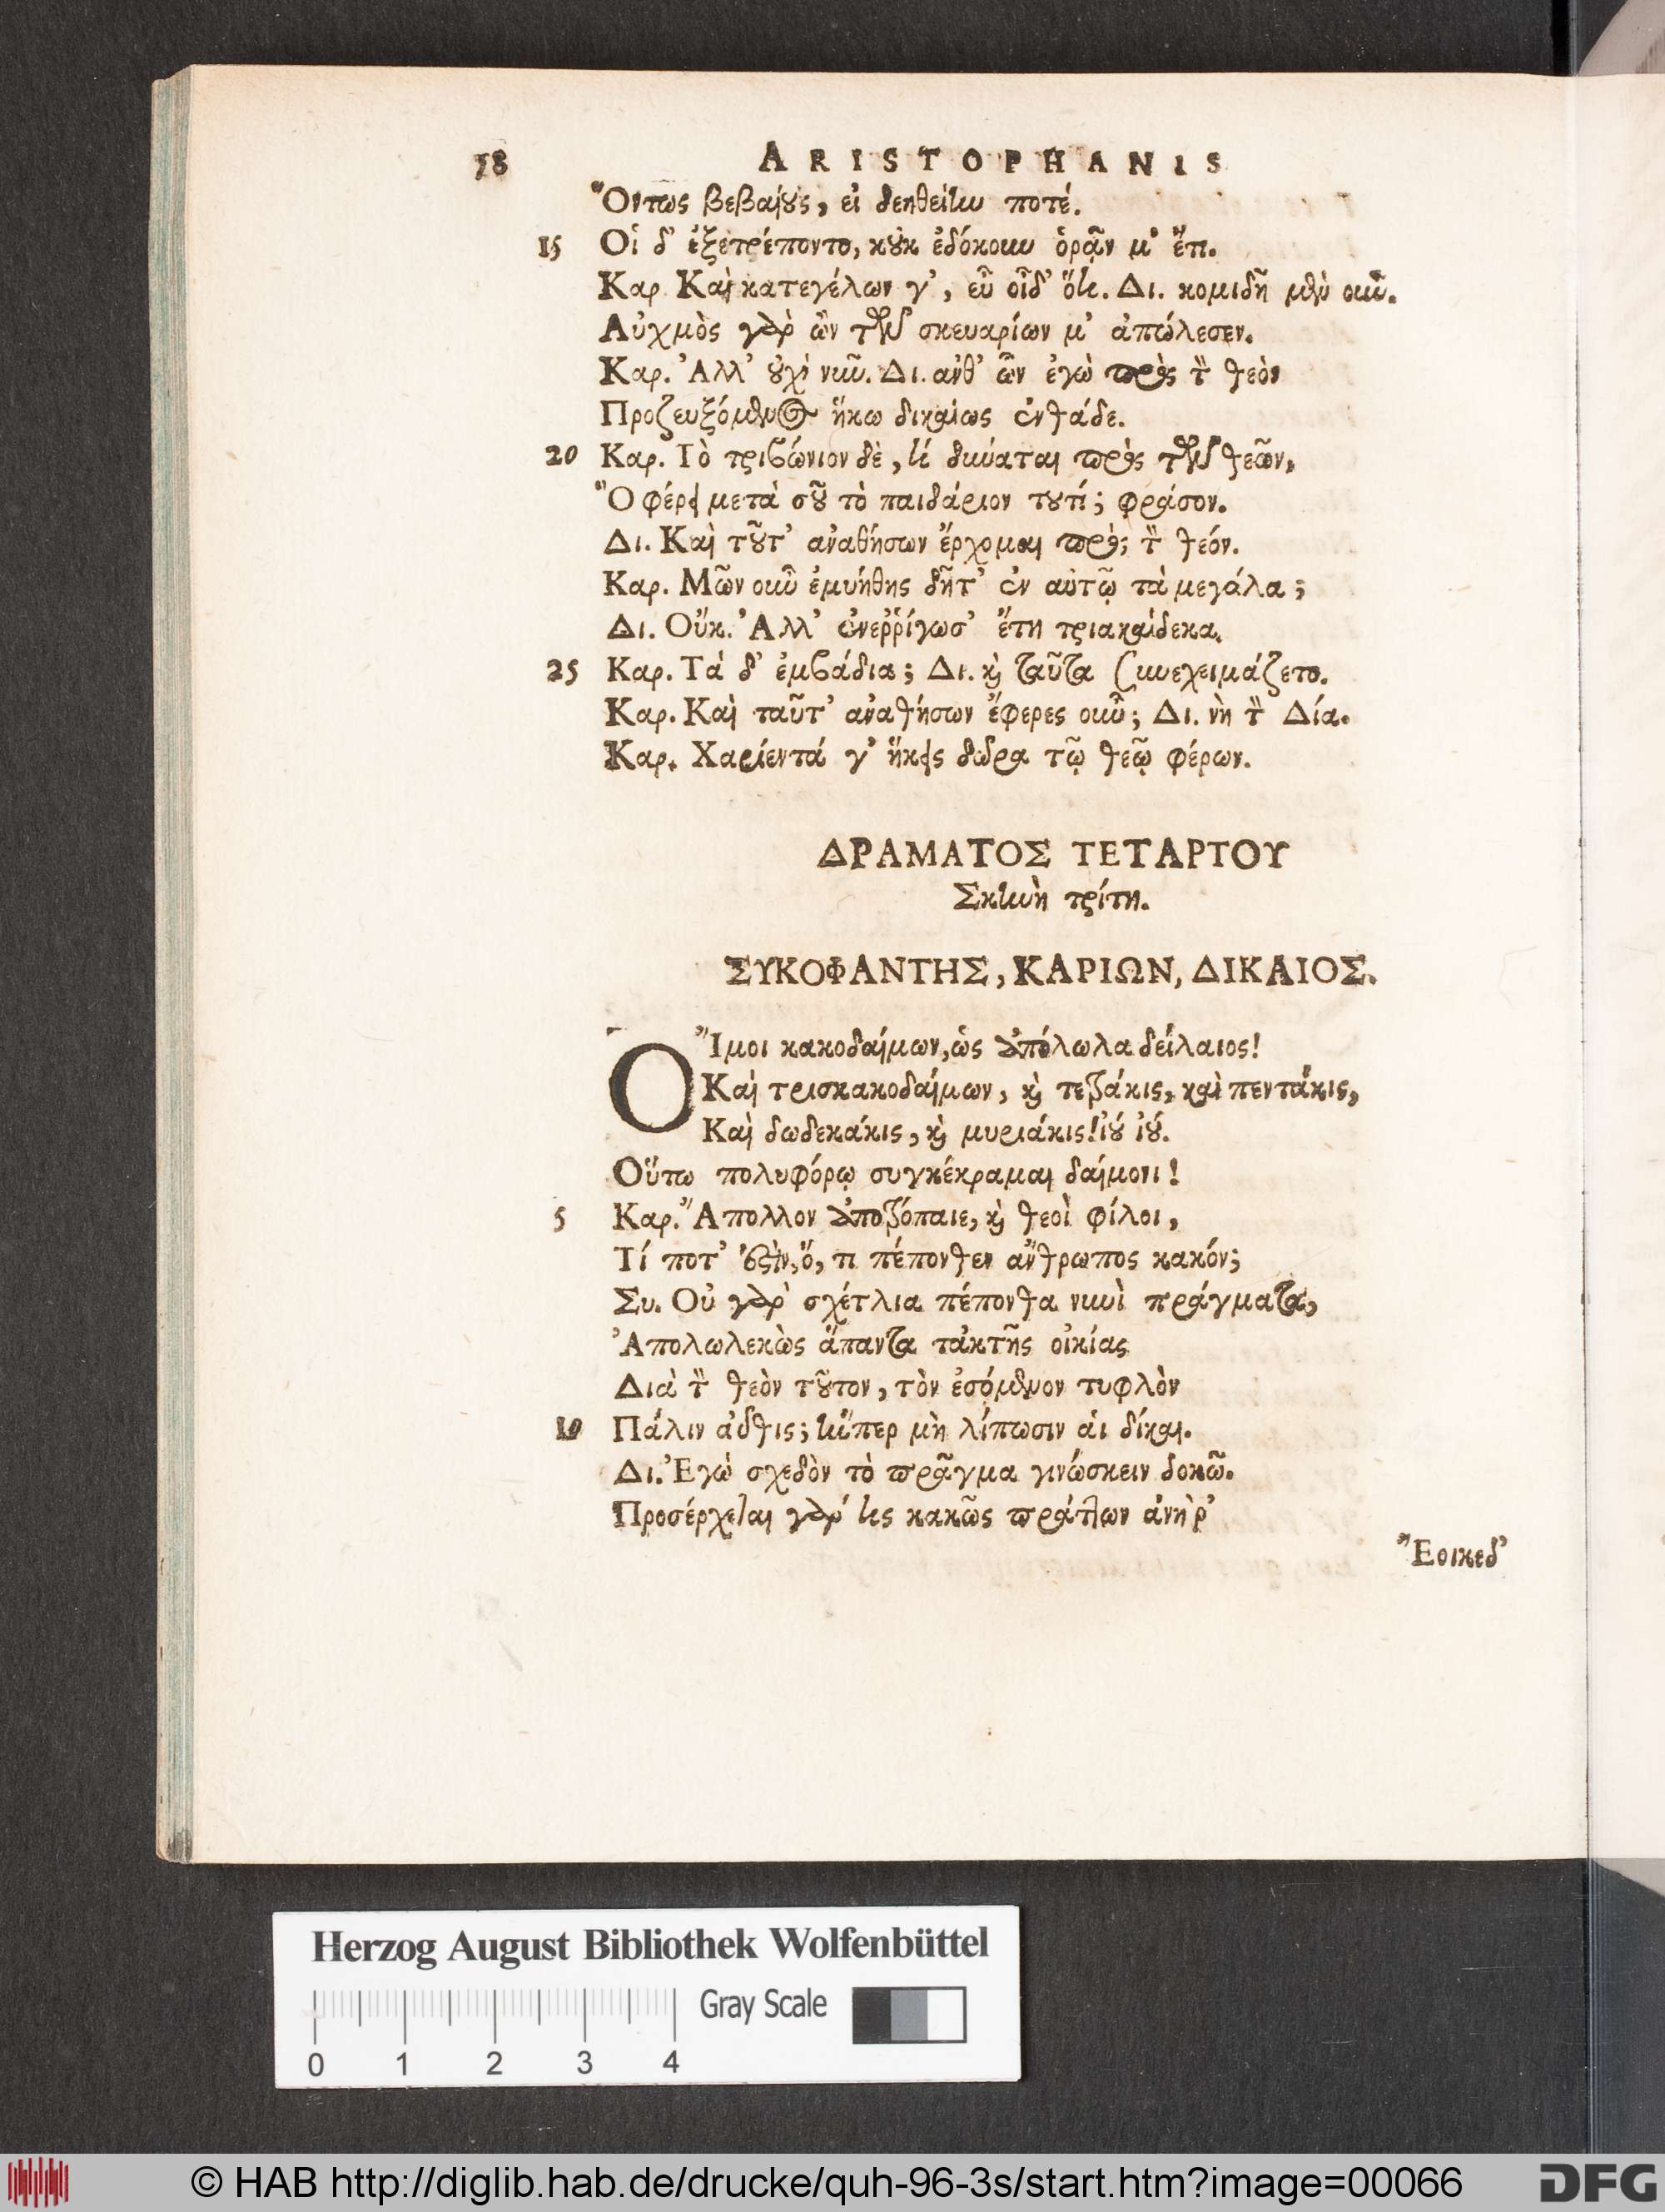 58 ARISTOPHANIS
Ὄντως βεβαίους, εἰ δεηθείην ποτέ.
15 Οἱ δ' ἐξετρέποντο, κοὐκ ἐδόκουν ὁρᾷν μ' ἔτι.
Καρ. Καὶ κατεγέλων γ', εὖ οἶδ' ὅτι. Δι. κομιδῆ μὲν οὖν.
Αὐχμὸς γὰρ ὢν τῶν σκευαρίων μ' ἀπώλεσεν.
Καρ. Ἀλλ' οὐχὶ νῦν. Δι. ἀνθ' ὧν ἐγὼ πρὸς τὸν θεὸν
Προσευξόμενος ἥκω δικαίως ἐνθάδε.
20 Καρ. Τὸ τριβώνιον δὲ, τί δύναται πρὸς τῶν θεῶν,
Ὃ φέρει μετὰ σοῦ τὸ παιδάριον τουτί; φράσον.
Δι. Καὶ τοῦτ' ἀναθήσων ἔρχομαι πρὸς τὸν θεόν.
Καρ. Μῶν οὖν ἐμυήθης δῆτ' ἐν αὐτῷ τὰ μεγάλα;
Δι. Οὔκ. Ἀλλ' ἐνερῤῥίγωσ' ἔτη τριακαίδεκα.
25 Καρ. Τὰ δ' ἐμβάδια; Δι. καὶ ταῦτα συνεχειμάζετο.
Καρ. Καὶ ταῦτ' ἀναθήσων ἔφερες οὖν; Δι. νὴ τὸν Δία.
Καρ. Χαρίεντά γ' ἥκεις δῶρα τῷ θεῷ φέρων.
ΔΡΑΜΑΤΟΣ ΤΕΤΑΡΤΟΥ
Σκηνὴ τρίτη.
ΣΥΚΟΦΑΝΤΗΣ, ΚΑΡΙΩΝ, ΔΙΚΑΙΟΣ.
Ὄιμοι κακοδαίμων, ὡς ἀπόλωλα δείλαιος!
Καὶ τρισκακοδαίμων, καὶ τετράκις, καὶ πεντάκις,
Καὶ δωδεκάκις, καὶ μυριάκις! ἰού ἰού.
Οὕτω πολυφόρῳ συγκέκραμαι δαίμονι!
5 Καρ. Ἄπολλον ἀποτρόπαιε, καὶ θεοὶ φίλοι,
Τί ποτ' ἐστὶν, ὅ, τι πέπονθεν ἄνθρωπος κακόν;
Συ. Οὐ γὰρ σχέτλια πέπονθα νυνὶ πράγματα,
Ἀπολωλεκὼς ἅπαντα τἀκ τῆς οἰκίας
Διὰ τὸν θεὸν τοῦτον, τὸν ἐσόμενον τυφλὸν
10 Πάλιν ἀῦθις; ἤνπερ μὴ λίπωσιν ἁι δίκαι.
Δι. Ἐγώ σχεδὸν τὸ πρᾶγμα γινώσκειν δοκῶ.
Προσέρχεται γάρ τις κακῶς πράττων ἀνὴρ'
Ἔοικε δ'
Herzog August Bibliothek Wolfenbüttel
Gray Scale
0 1 2 3 4
© HAB http://diglib.hab.de/drucke/quh-96-3s/start.htm?image=00066
DFG